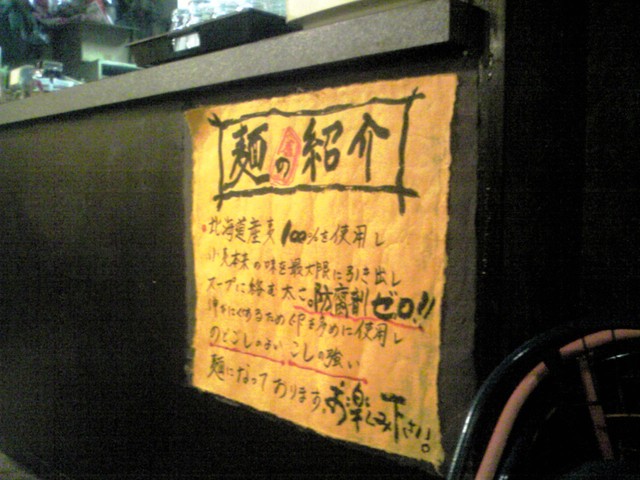 麺の紹介
北海道産麦100%を使用し
小麦本来の味を最大限に引き出し
スープに絡む太さ。防腐剤ゼロ!!
伸びにくめるため卵を多めに使用し
のどごしのよいこしの強い
麺になっております。お楽しみ下さい。